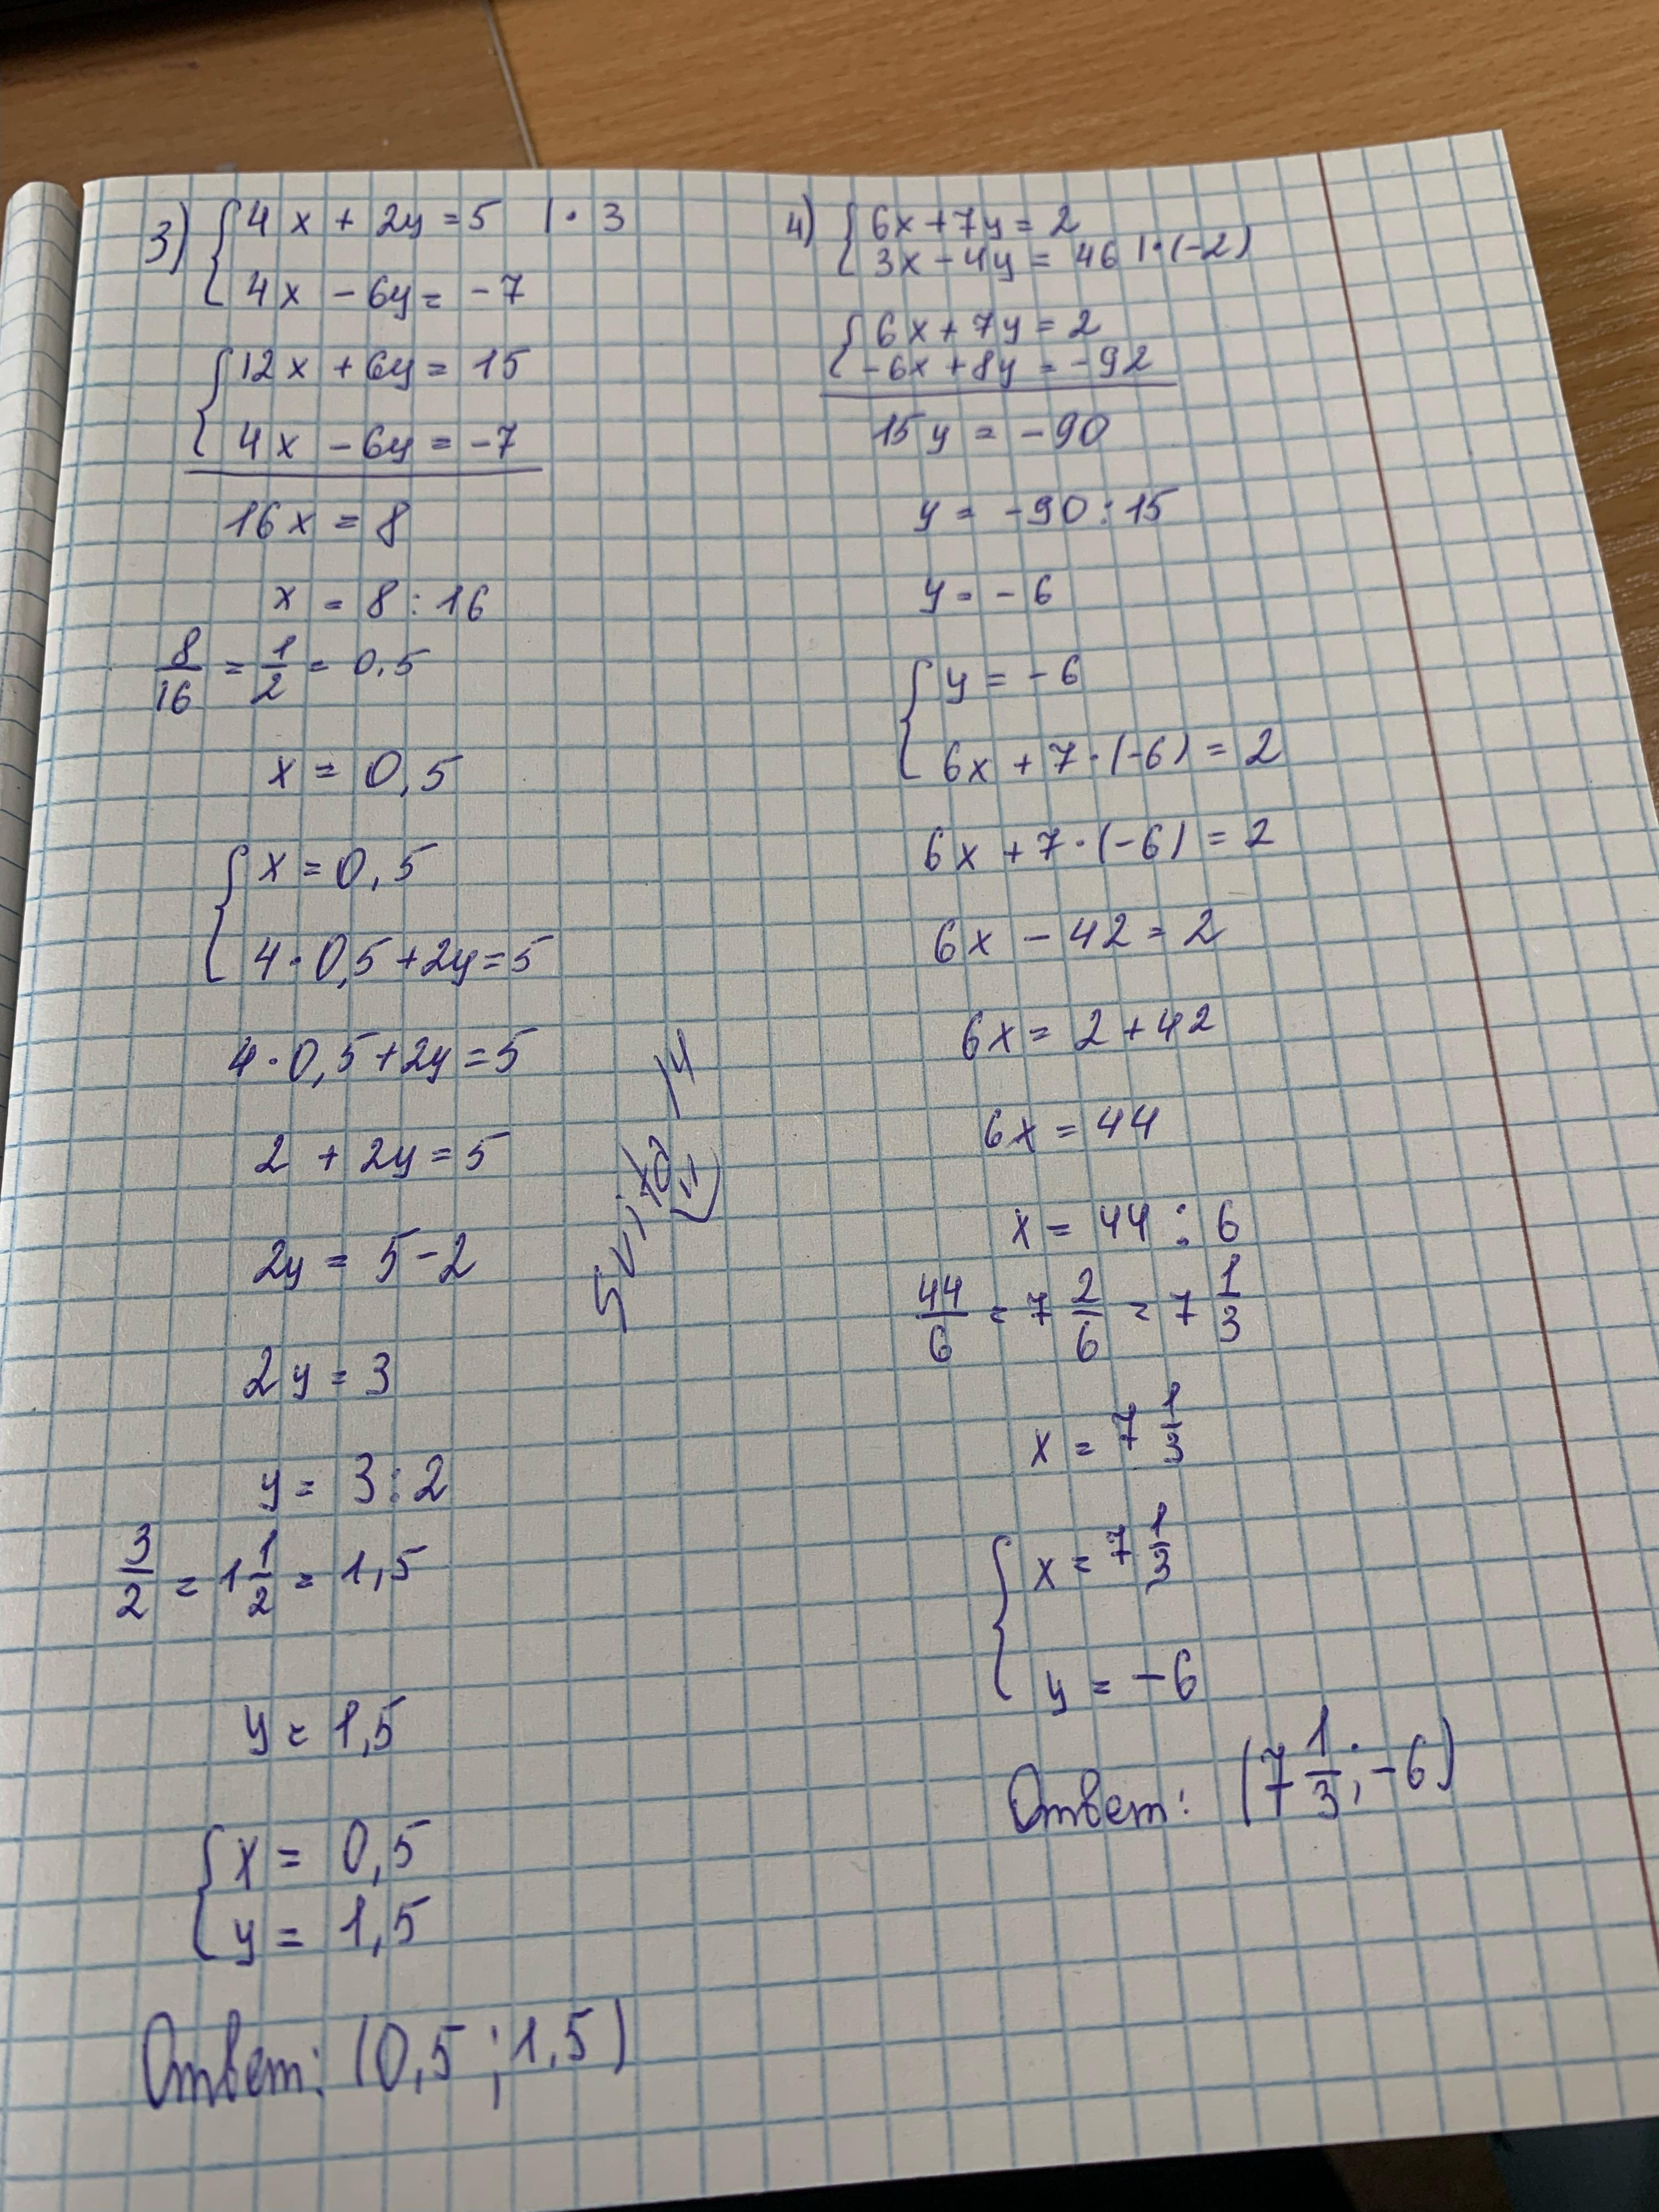 3) { 4x + 2y = 5 | · 3
4x - 6y = -7
{ 12x + 6y = 15
4x - 6y = -7
16x = 8
x = 8 : 16
8/16 = 1/2 = 0.5
x = 0,5
{ x = 0,5
4 · 0,5 + 2y = 5
4 · 0,5 + 2y = 5
2 + 2y = 5
2y = 5 - 2
2y = 3
y = 3 : 2
3/2 = 1 1/2 = 1,5
y = 1,5
{ x = 0,5
y = 1,5
Ответ: (0,5 ; 1,5)
4) { 6x + 7y = 2
3x - 4y = 46 | · (-2)
{ 6x + 7y = 2
-6x + 8y = -92
15y = -90
y = -90 : 15
y = -6
{ y = -6
6x + 7 · (-6) = 2
6x + 7 · (-6) = 2
6x - 42 = 2
6x = 2 + 42
6x = 44
x = 44 : 6
44/6 = 7 2/6 = 7 1/3
x = 7 1/3
{ x = 7 1/3
y = -6
Ответ: (7 1/3 ; -6)